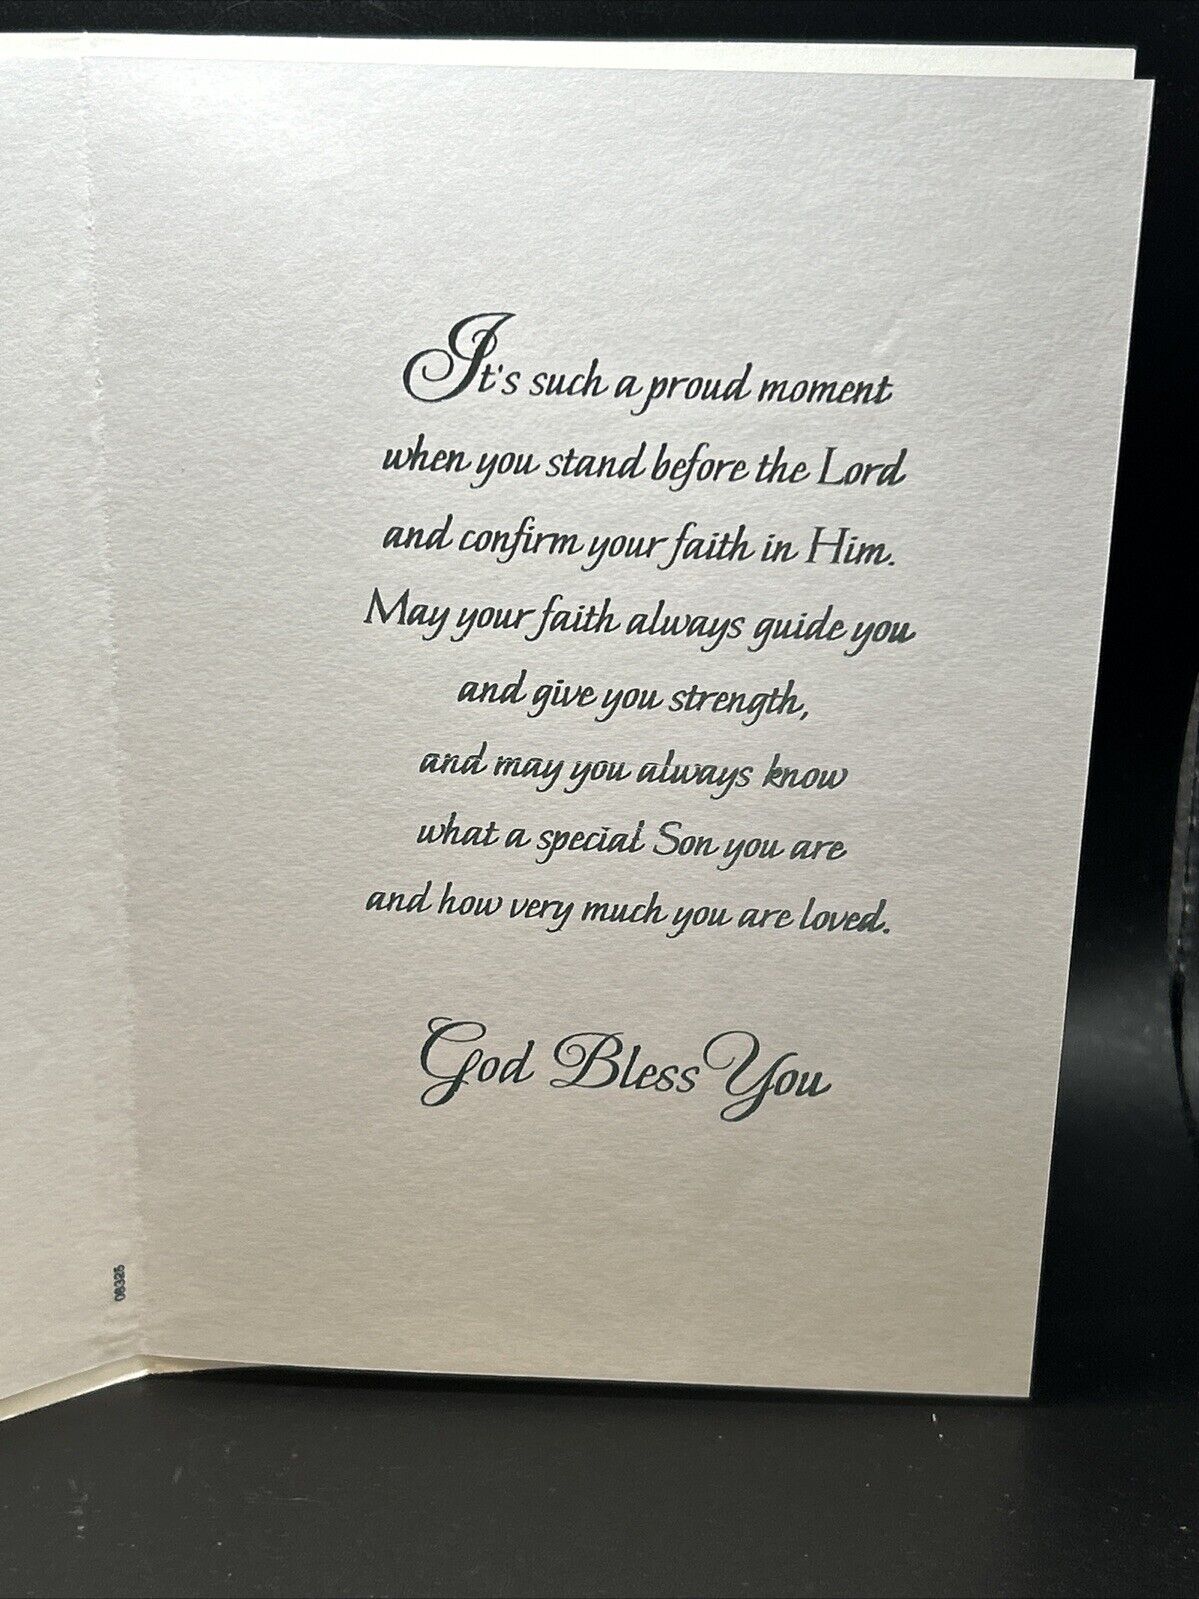 It's such a proud moment
when you stand before the Lord
and confirm your faith in Him.
May your faith always guide you
and give you strength,
and may you always know
what a special Son you are
and how very much you are loved.
God Bless You
08325